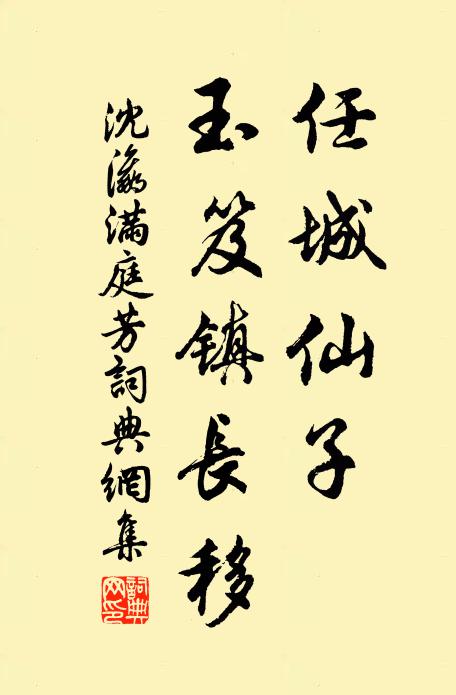 任城仙子
玉笈鎮長移
沈瀛滿庭芳詞典網集
詞典網印